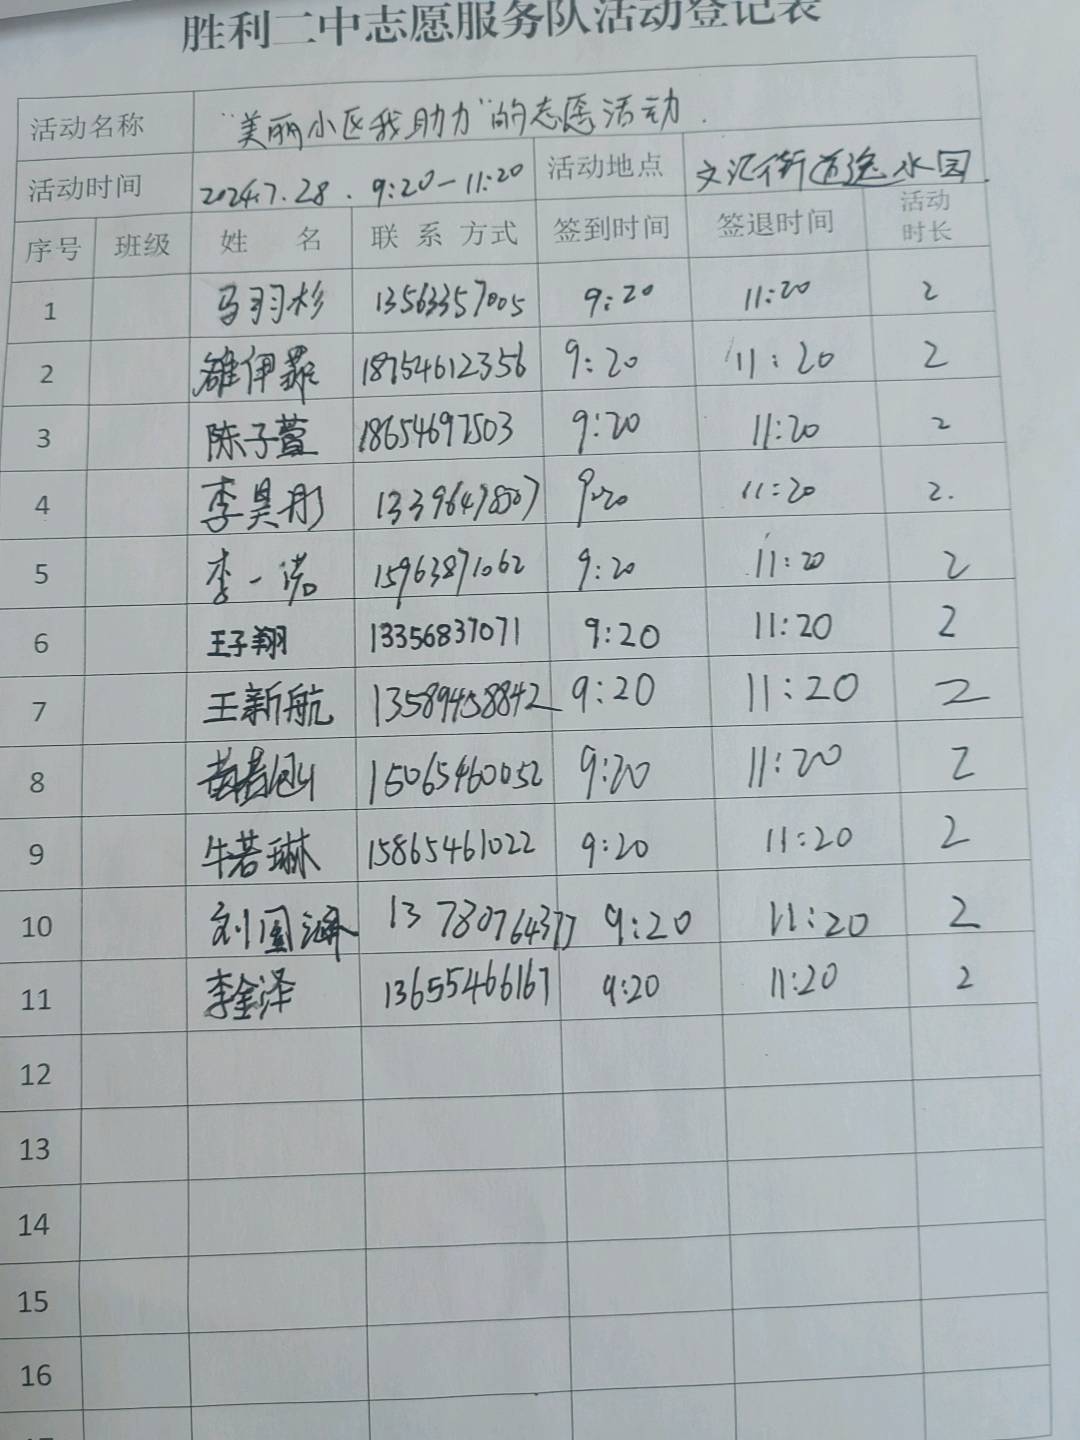 胜利二中志愿服务队活动登记表
活动名称 "美丽小区我助力"的志愿活动.
活动时间 2024.7.28. 9:20-11:20 活动地点 文汇街道逸水园.
序号 班级 姓名 联系方式 签到时间 签退时间 活动时长
1 马羽杉 13563357005 9:20 11:20 2
2 伊 18754612356 9:20 11:20 2
3 陈子萱 18654697503 9:20 11:20 2
4 李昊彤 9:20 11:20 2.
5 李一诺 15963871062 9:20 11:20 2
6 王子翔 13356837071 9:20 11:20 2
7 王新航 13589458842 9:20 11:20 2
8 15065460052 9:20 11:20 2
9 牛若琳 15865461022 9:20 11:20 2
10 刘国 13780764377 9:20 11:20 2
11 李金泽 13655466167 9:20 11:20 2
12
13
14
15
16